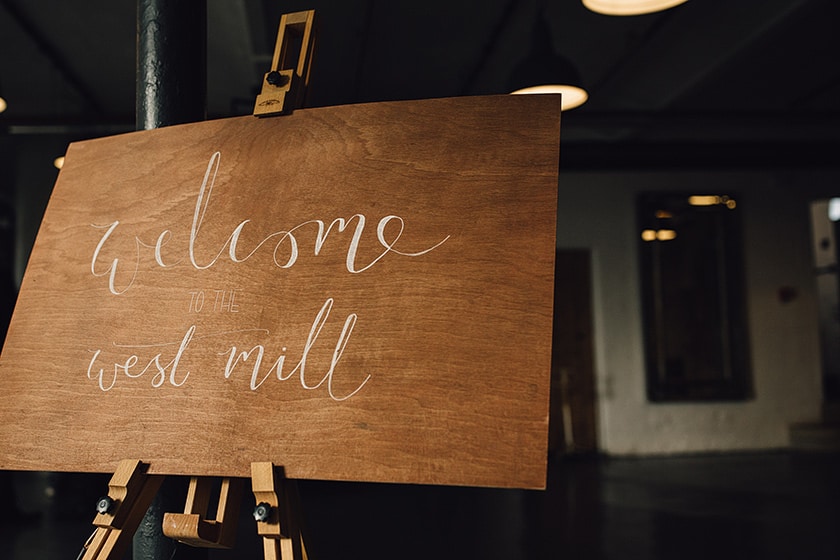 welcome
TO THE
west mill